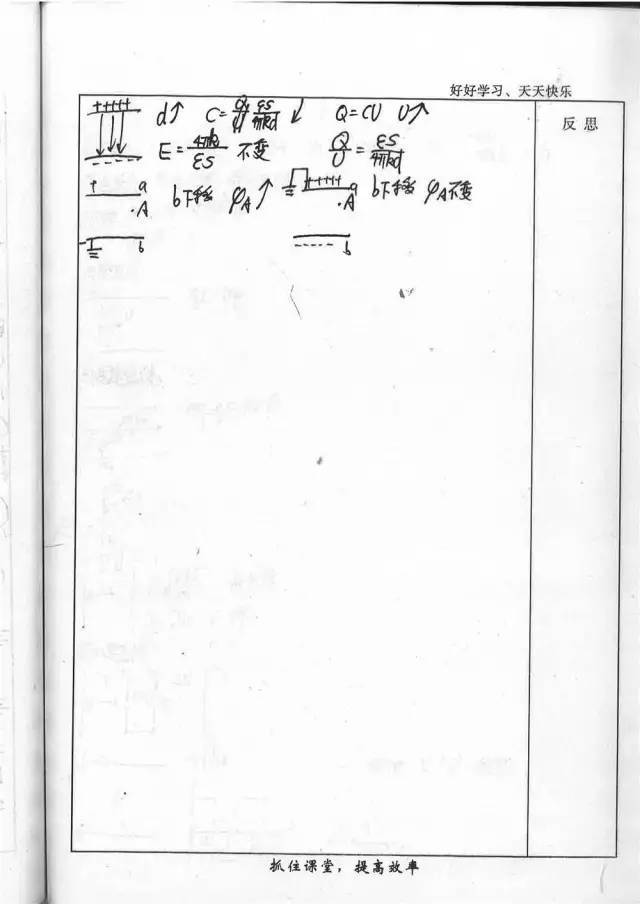 好好学习、天天快乐
反思
+++++ d↑ C=Q/U εS/4πkd ↓ Q=CU U↑
E=4πk/εS 不变 Q/U=εS/4πkd
- - - -
+ a b下移 φA↑ ++++ a b下移 φA不变
·A ·A
b - - - - - b
抓住课堂，提高效率